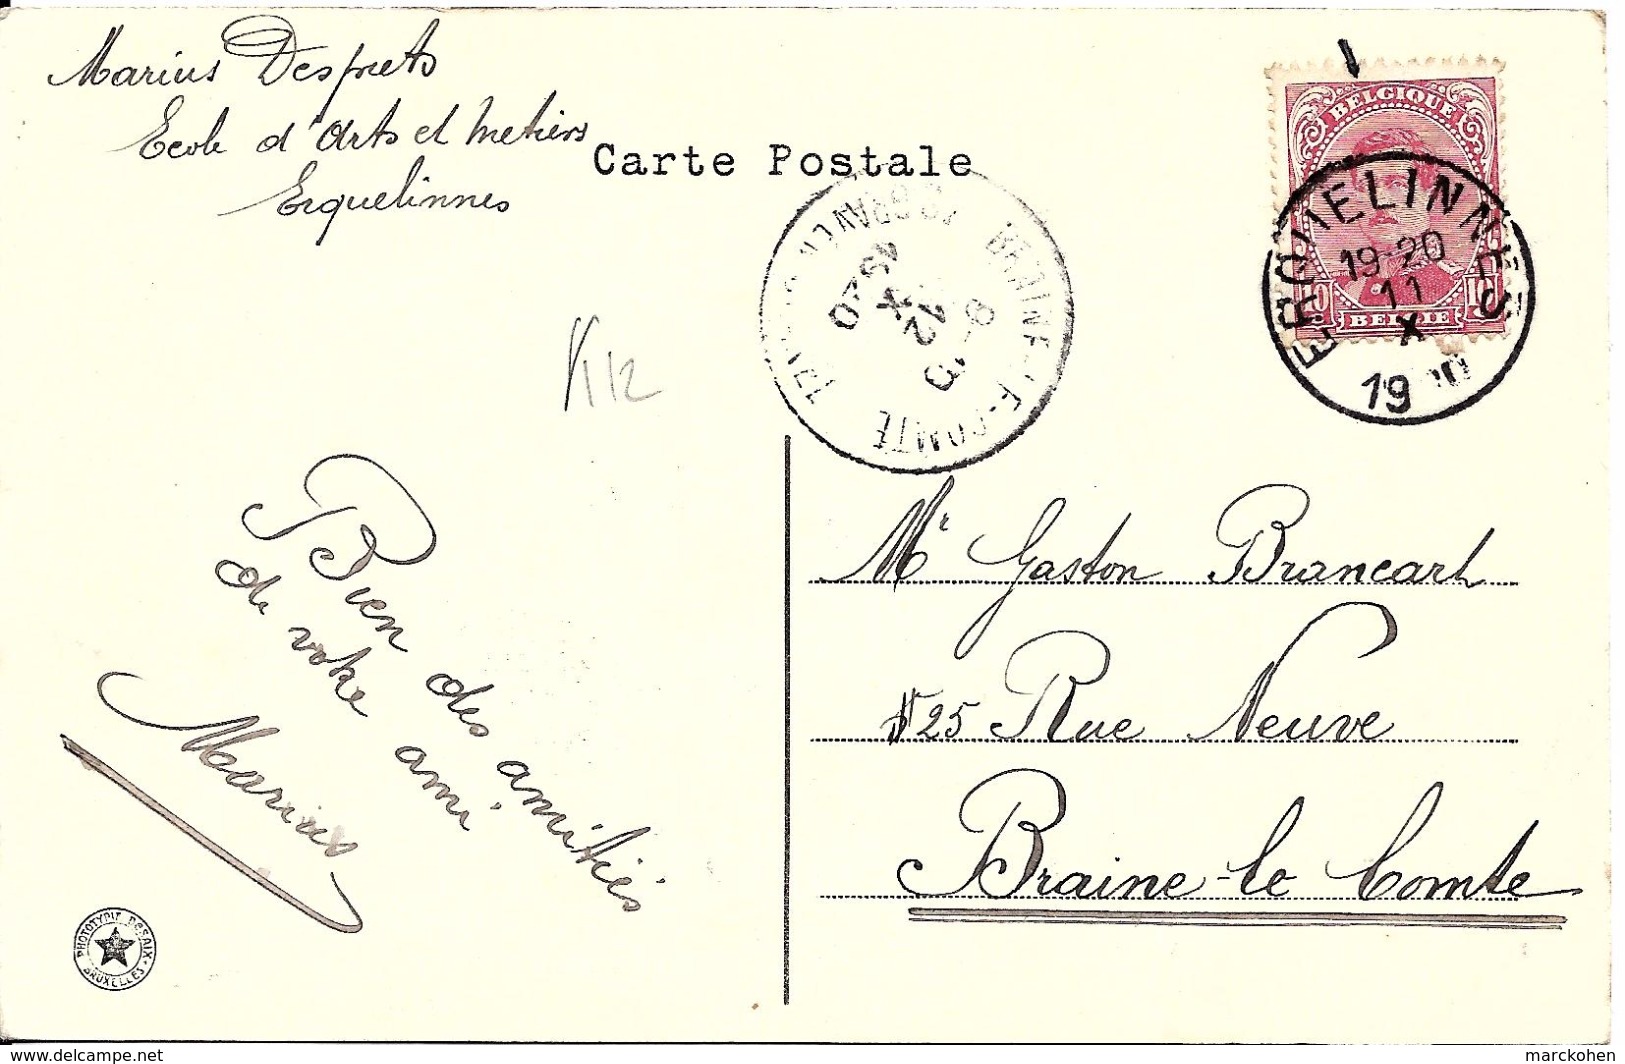 Marius Desprets
Ecole d'Arts et Metiers
Erquelinnes
Carte Postale
BELGIQUE
10 10
BELGIE
ERQUELINNES
19-20
11
X
19
BRAINE-LE-COMTE
12
X
K12
Bien des amitiés
de votre ami
Marius
Mr Gaston Brancart
25 Rue Neuve
Braine-le Comte
PHOTOTYPIE DESAIX
BRUXELLES
delcampe.net
marckohen